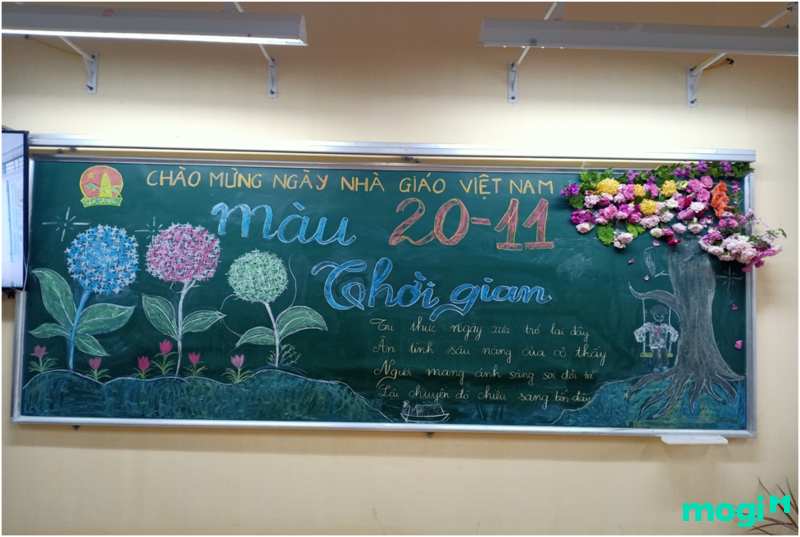 SẴN SÀNG
CHÀO MỪNG NGÀY NHÀ GIÁO VIỆT NAM
20-11
màu
Thời gian
Tri thức ngày xưa trở lại đây
Ân tình sâu nặng của cô thầy
Người mang ánh sáng soi đời trẻ
Lái chuyến đò chiều sang bến đây
mogi